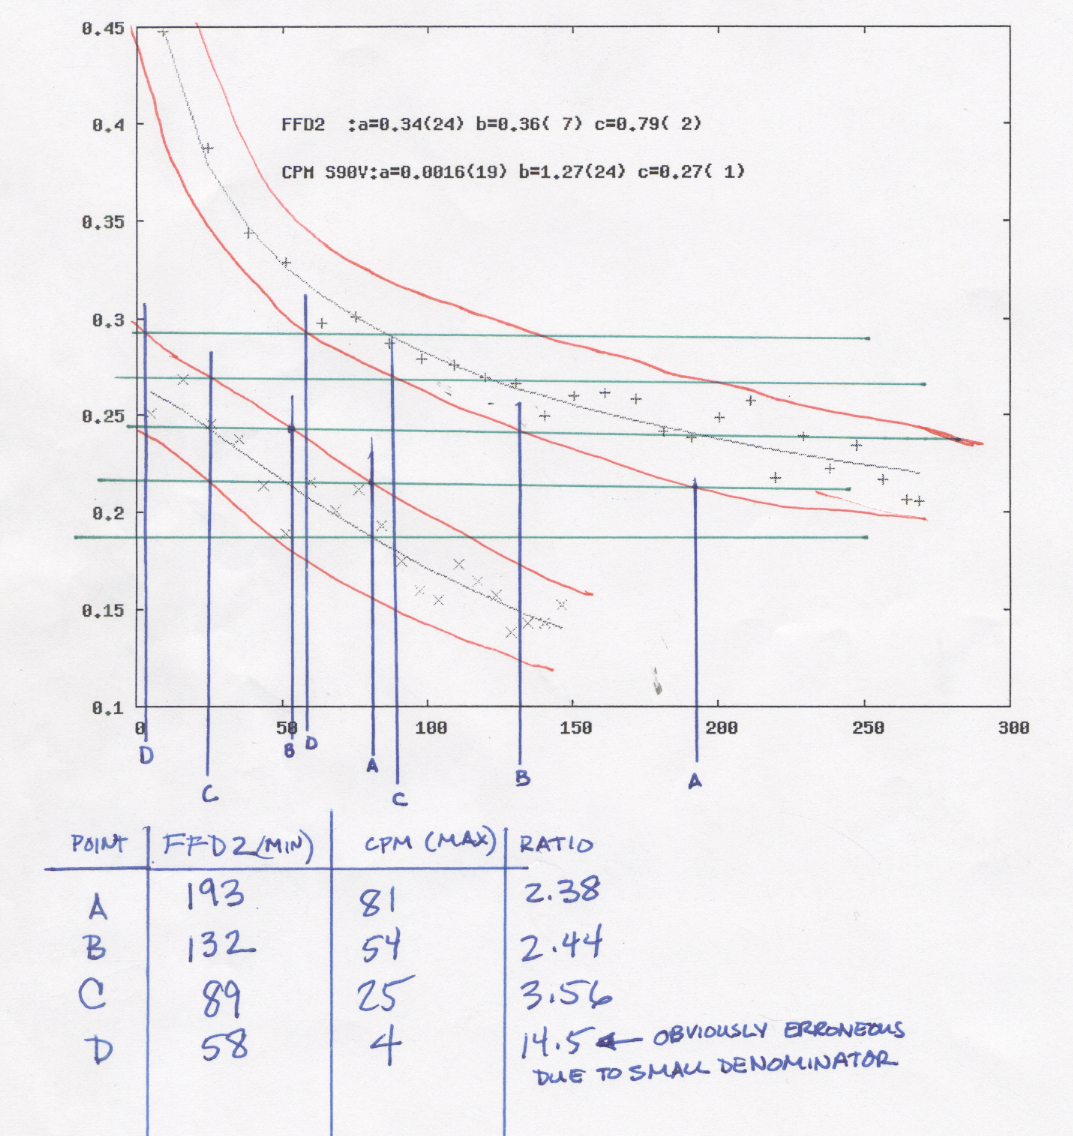 0.45
0.4
FFD2 :a=0.34(24) b=0.36( 7) c=0.79( 2)
CPM S90V:a=0.0016(19) b=1.27(24) c=0.27( 1)
0.35
0.3
0.25
0.2
0.15
0.1
0 50 100 150 200 250 300
D C B D A C B A
POINT FFD2 (MIN) CPM (MAX) RATIO
A 193 81 2.38
B 132 54 2.44
C 89 25 3.56
D 58 4 14.5 ← OBVIOUSLY ERRONEOUS
DUE TO SMALL DENOMINATOR